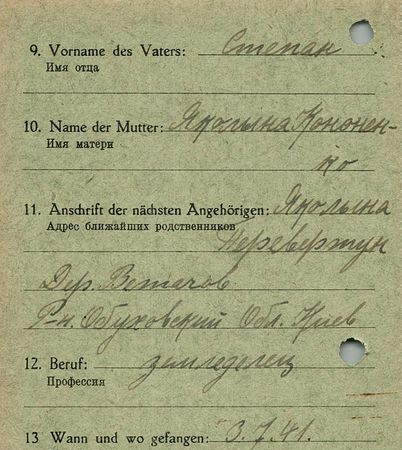 9. Vorname des Vaters: Степан
Имя отца
10. Name der Mutter: Яколына Кононен-
Имя матери
ко
11. Anschrift der nächsten Angehörigen: Яколына
Адрес ближайших родственников
Перевертун
Дер. Витачов
Р-н. Обуховский Обл. Киев
12. Beruf: земледелец
Профессия
13 Wann und wo gefangen: 3.7.41.